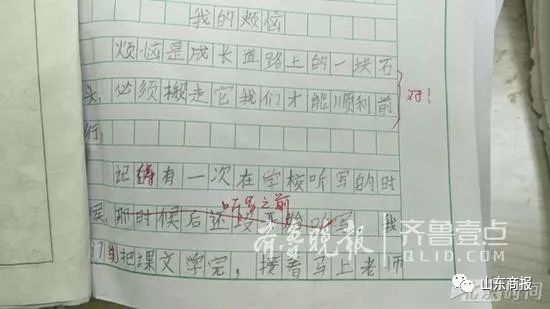 我的烦恼
烦恼是成长道路上的一块石
头,必须搬走它我们才能顺利前 对!
行。
记得有一次在学校听写的时
听写之前
候那时候后还没开始听写,我
刚把课文学完,接着马上老师
齐鲁晚报 齐鲁壹点
QLID.COM
山东商报
时间